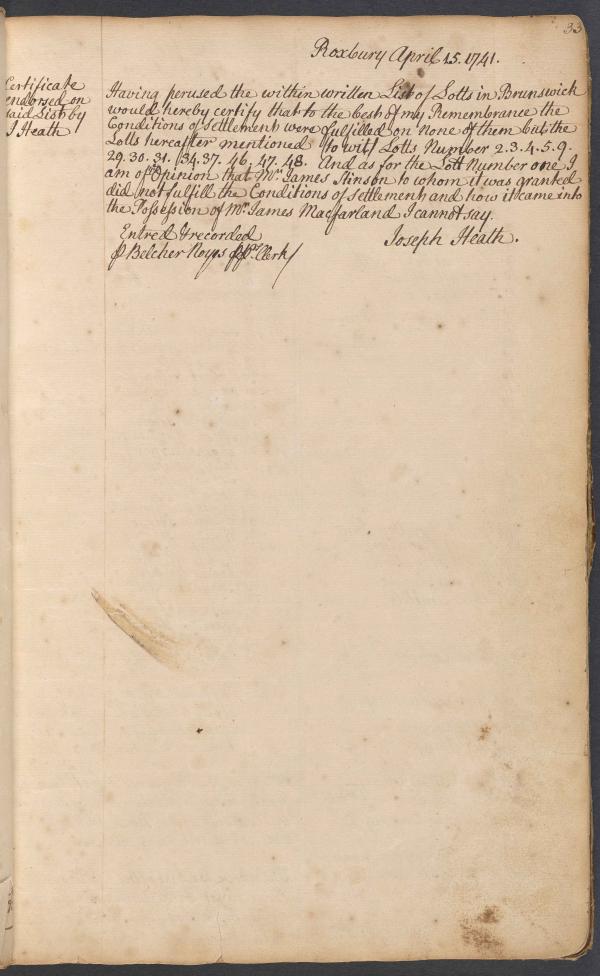 33
Roxbury April 15. 1741.
Certificate
endorsed on
said List by
J Heath
Having perused the within written List of Lotts in Brunswick
would hereby certify that to the best of my Remembrance the
Conditions of Settlement were fulfilled on none of them but the
Lotts hereafter mentioned to wit Lotts Number 2.3.4.5.9.
29.30.31.34.37.46.47.48. And as for the Lott Number one I
am of Opinion that Mr. James Stinson to whom it was granted
did not fulfill the Conditions of Settlement and how it came into
the Possession of Mr. James Macfarland I cannot say.
Joseph Heath.
Entred & recorded
Belcher Noyes Clerk